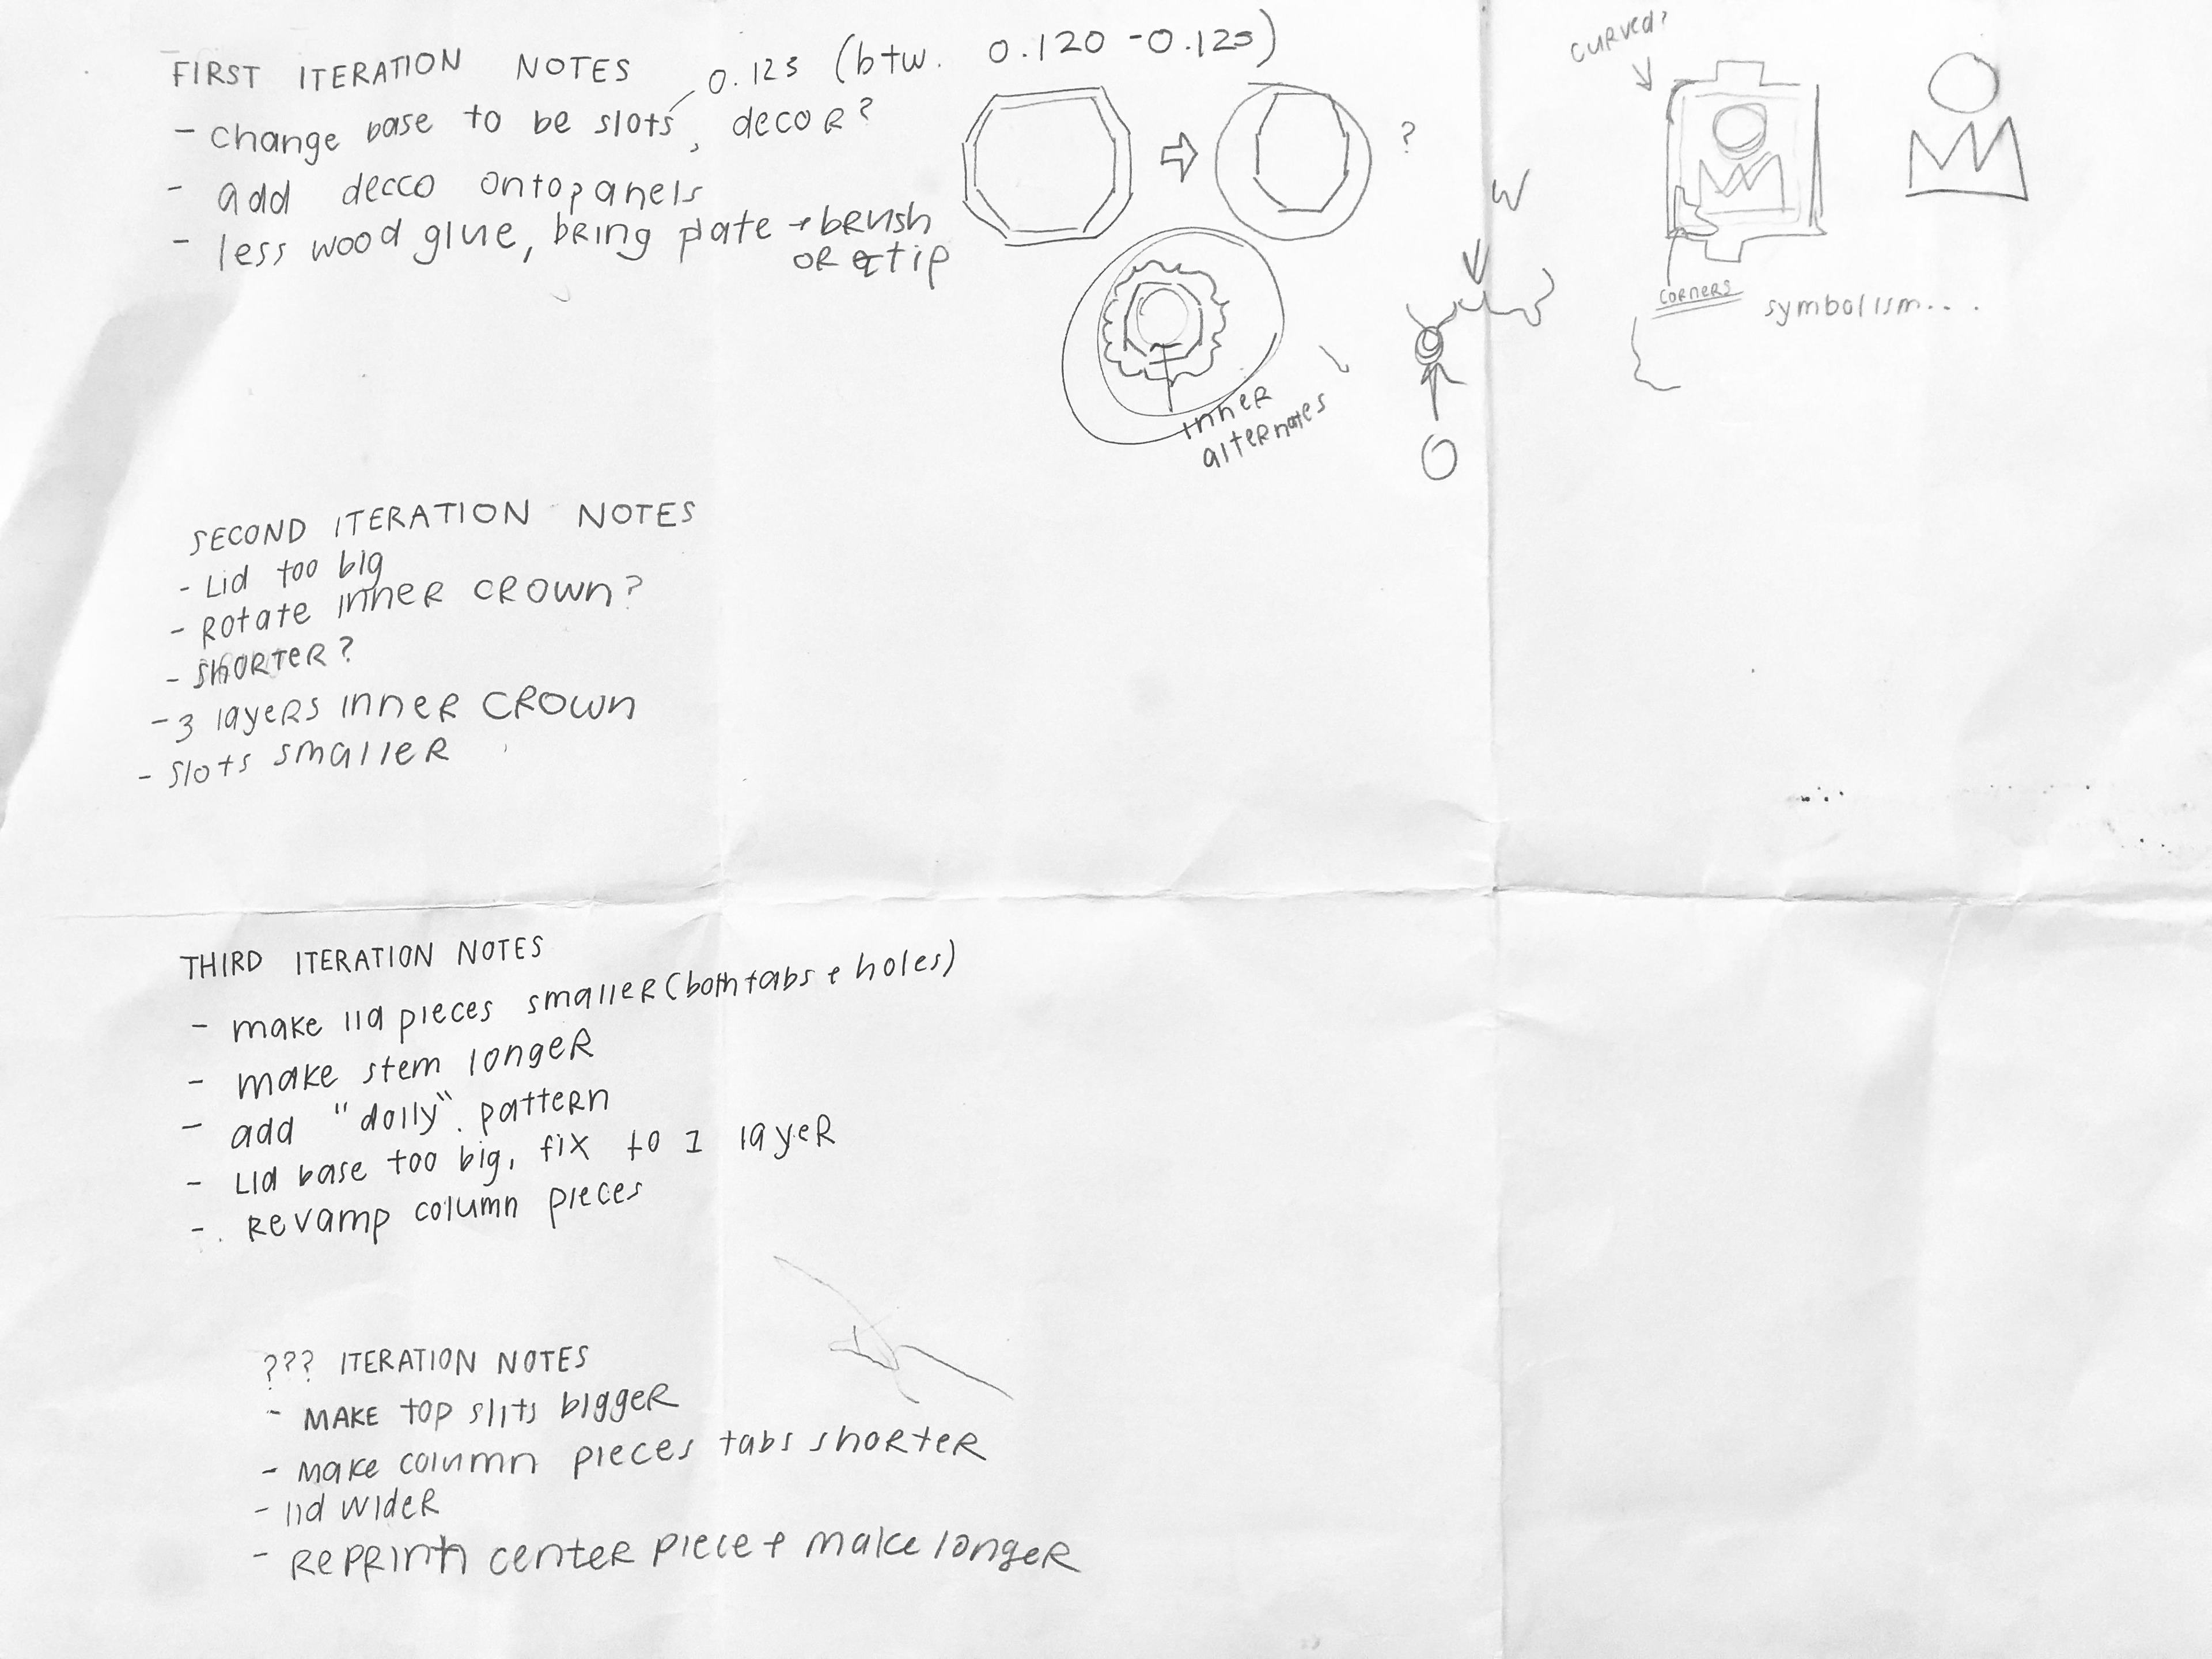 FIRST ITERATION NOTES
0.125 (btw. 0.120 - 0.125)
- change base to be slots, decor?
- add decco onto panels
- less wood glue, bring plate + brush
or qtip
?
curved?
W
corners
symbolism....
inner
alternates
SECOND ITERATION NOTES
- Lid too big
- Rotate inner crown?
- shorter?
- 3 layers inner crown
- slots smaller
THIRD ITERATION NOTES
- make lid pieces smaller (both tabs + holes)
- make stem longer
- add "doily" pattern
- Lid base too big, fix to 1 layer
- Revamp column pieces
??? ITERATION NOTES
- MAKE top slits bigger
- make column pieces tabs shorter
- lid wider
- Reprint center piece + make longer